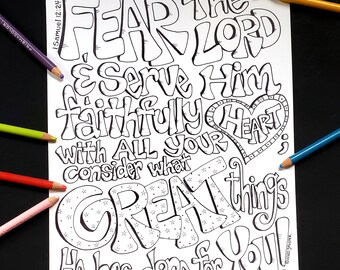 1 Samuel 12:24
FEAR the
LORD
& Serve Him
faithfully
with ALL YOUR
HEART;
consider what
GREAT things
He has done for YOU!